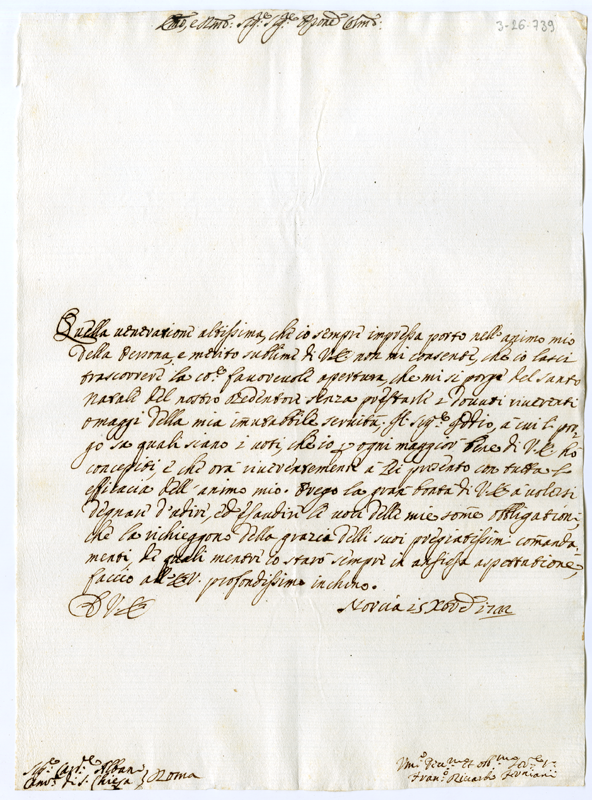 3-26-739
Quella veneratione altissima, che io sempre impressa porto nell'animo mio
della Persona, e merito sublime di V.E. non mi consente, che io lasci
trascorrere la favorevole apertura, che mi si porge del santo
natale del nostro Redentore senza prestarle i dovuti riverenti
omaggi della mia immutabile servitù. Il Sig.re Iddio, a cui è pre
sa quali siano i voti, che io ogni maggior bene di V.E. hò
concepiti, e che ora riverentemente a Lei presento con tutta l'
efficacia dell'animo mio. Prego la gran bontà di V.E. à volersi
degnare d'udire, ed esaudire le voci delle mie somme obligationi,
che la richieggono della grazia delli suoi pregiatissimi comanda-
menti, de quali mentre io starò sempre in ansiosa aspettatione,
faccio all'E.V. profondissimo inchino.
D V.E. Norcia 15 Xbre
Sig.re Card.le Albani
di S. Chiesa } Roma
Fran.co Ricardo